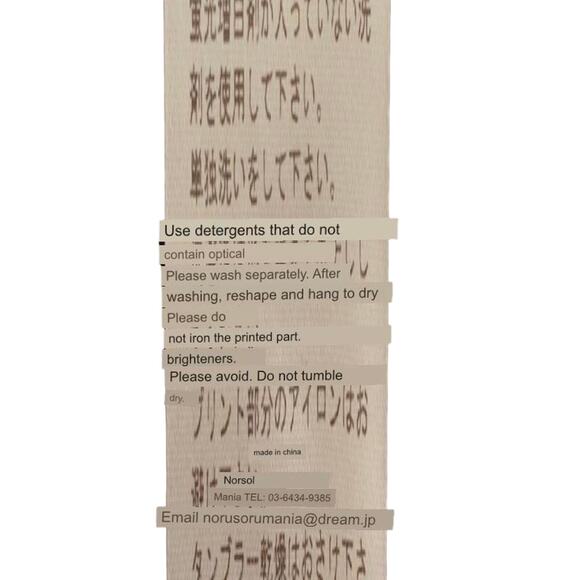 蛍光増白剤が入っていない洗
剤を使用して下さい。
単独洗いをして下さい。
Use detergents that do not
contain optical
Please wash separately. After
washing, reshape and hang to dry
Please do
not iron the printed part.
brighteners.
Please avoid. Do not tumble
dry.
プリント部分のアイロンはお
made in china
Norsol
Mania TEL: 03-6434-9385
Email norusorumania@dream.jp
タンブラー乾燥はおさけ下さ